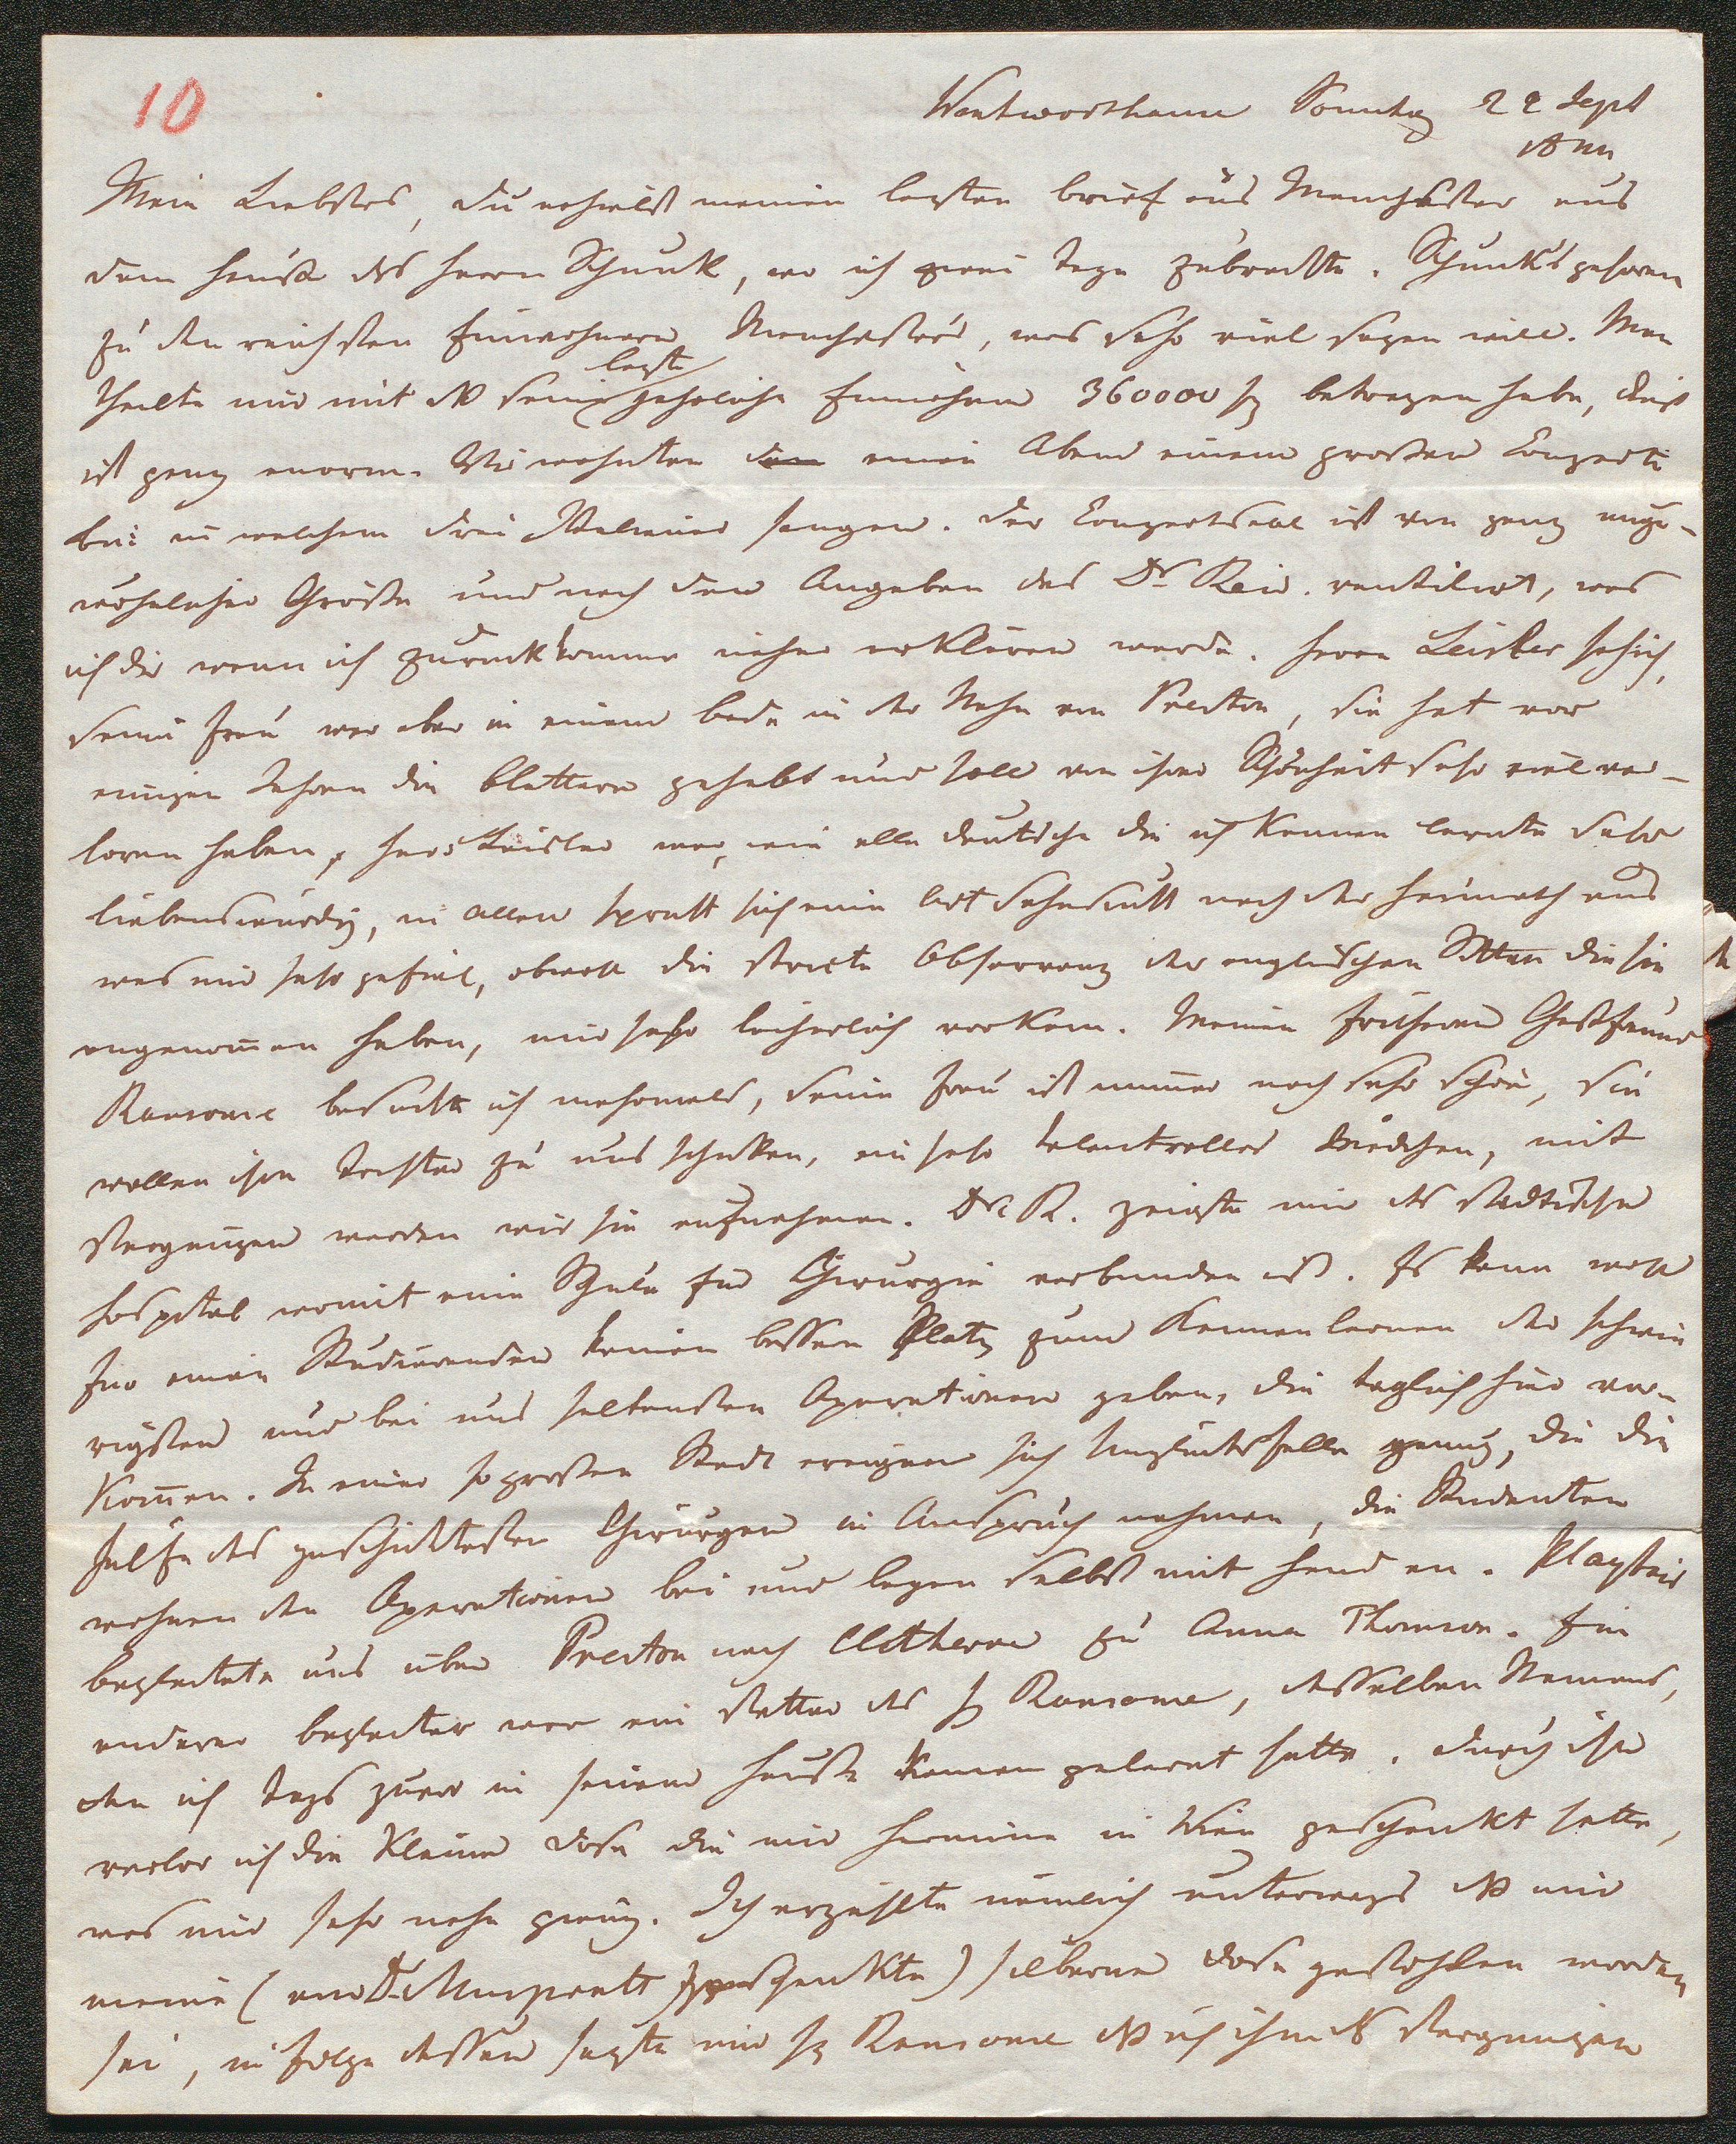 10
Wentworthouse Sonntag 22 Sept
Mein Liebstes, Du erhielst meinen letzten brief aus Manchester aus
dem Hause des Herrn Schunk, wo ich zwei tage zubrachte. Schunk's gehören
zu den reichsten Einwohnern Manchesters, was sehr viel sagen will. Man
letzte
theilte mir mit daß seine jahrliche Einnahme 360000 betragen habe, dieß
ist ganz enorm. Wir wohnten einen Abend einem großen Conzerte
bei in welchem drei Italiener sangen. Der Conzertsaal ist von ganz unge-
wöhnlicher Größe und nach den Angaben des Dr Reid ventilirt, was
ich dir wenn ich zurückkomme näher erklären werde. Herrn Leisler sah ich,
seine Frau war aber in einem bade in der Nähe von Preston, sie hat vor
einigen Jahren die blattern gehabt und soll von ihrer Schönheit sehr viel ver-
loren haben, Herr Leisler war, wie alle deutsche die ich kennen lernte sehr
liebenswürdig, in allen sprach sich eine Art Sehnsucht nach der Heimath aus
was mir sehr gefiel, obwohl die stricte Observanz der englischen Sitten die sie
angenommen haben, mir sehr lächerlich vorkam. Meinen früheren Gastfreund
Ransome besuchte ich mehrmals, seine Frau ist immer noch sehr schön, sie
wollen ihre Tochter zu uns schicken, ein sehr talentvolles Mädchen, mit
Vergnügen werden wir sie aufnehmen. Dr R. zeigte mir das stadtische
Hospital womit eine Schule für Chirurgie verbunden ist. Es kann wohl
für einen Studierenden keinen bessern Platz zum Kennenlernen der schwie
rigsten und bei uns seltensten Operationen geben, die taglich hier vor-
kommen. In einer so großen Stadt ereignen sich Unglücksfälle genug, die die
Hülfe des geschicktesten Chirurgen in Anspruch nehmen, die Studenten
wohnen den Operationen bei und legen selbst mit Hand an. Playfair
begleitete uns über Preston nach Clitheroe zu Anna Thomson. Ein
anderer begleiter war ein Vetter des H Ransome, desselben Namens,
den ich tags zuvor in seinem Hause kennen gelernt hatte. Durch ihn
verlor ich die kleine Dose die mir Hermine in Wien geschenkt hatte,
was mir sehr nahe gieng. Ich erzählte nämlich unterwegs daß mir
meine (von Dr Muspratt geschenkte) silberne Dose gestohlen worden
sei, in Folge dessen sagte mir H Ransome daß ich ihm das Vergnügen